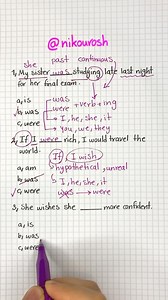 @nikourosh
she past continuous
1, My sister was studying late last night
for her final exam.
a, is
b, was
c, were
was
were
+ verb + ing
I, he, she, it
you, we, they
2, If I were rich, I would travel the
world.
If, I wish
a, am
b, was
c, were
hypothetical, unreal
I, he, she, it
was → were
3, She wishes she ____ more confident.
a, is
b, was
c, were